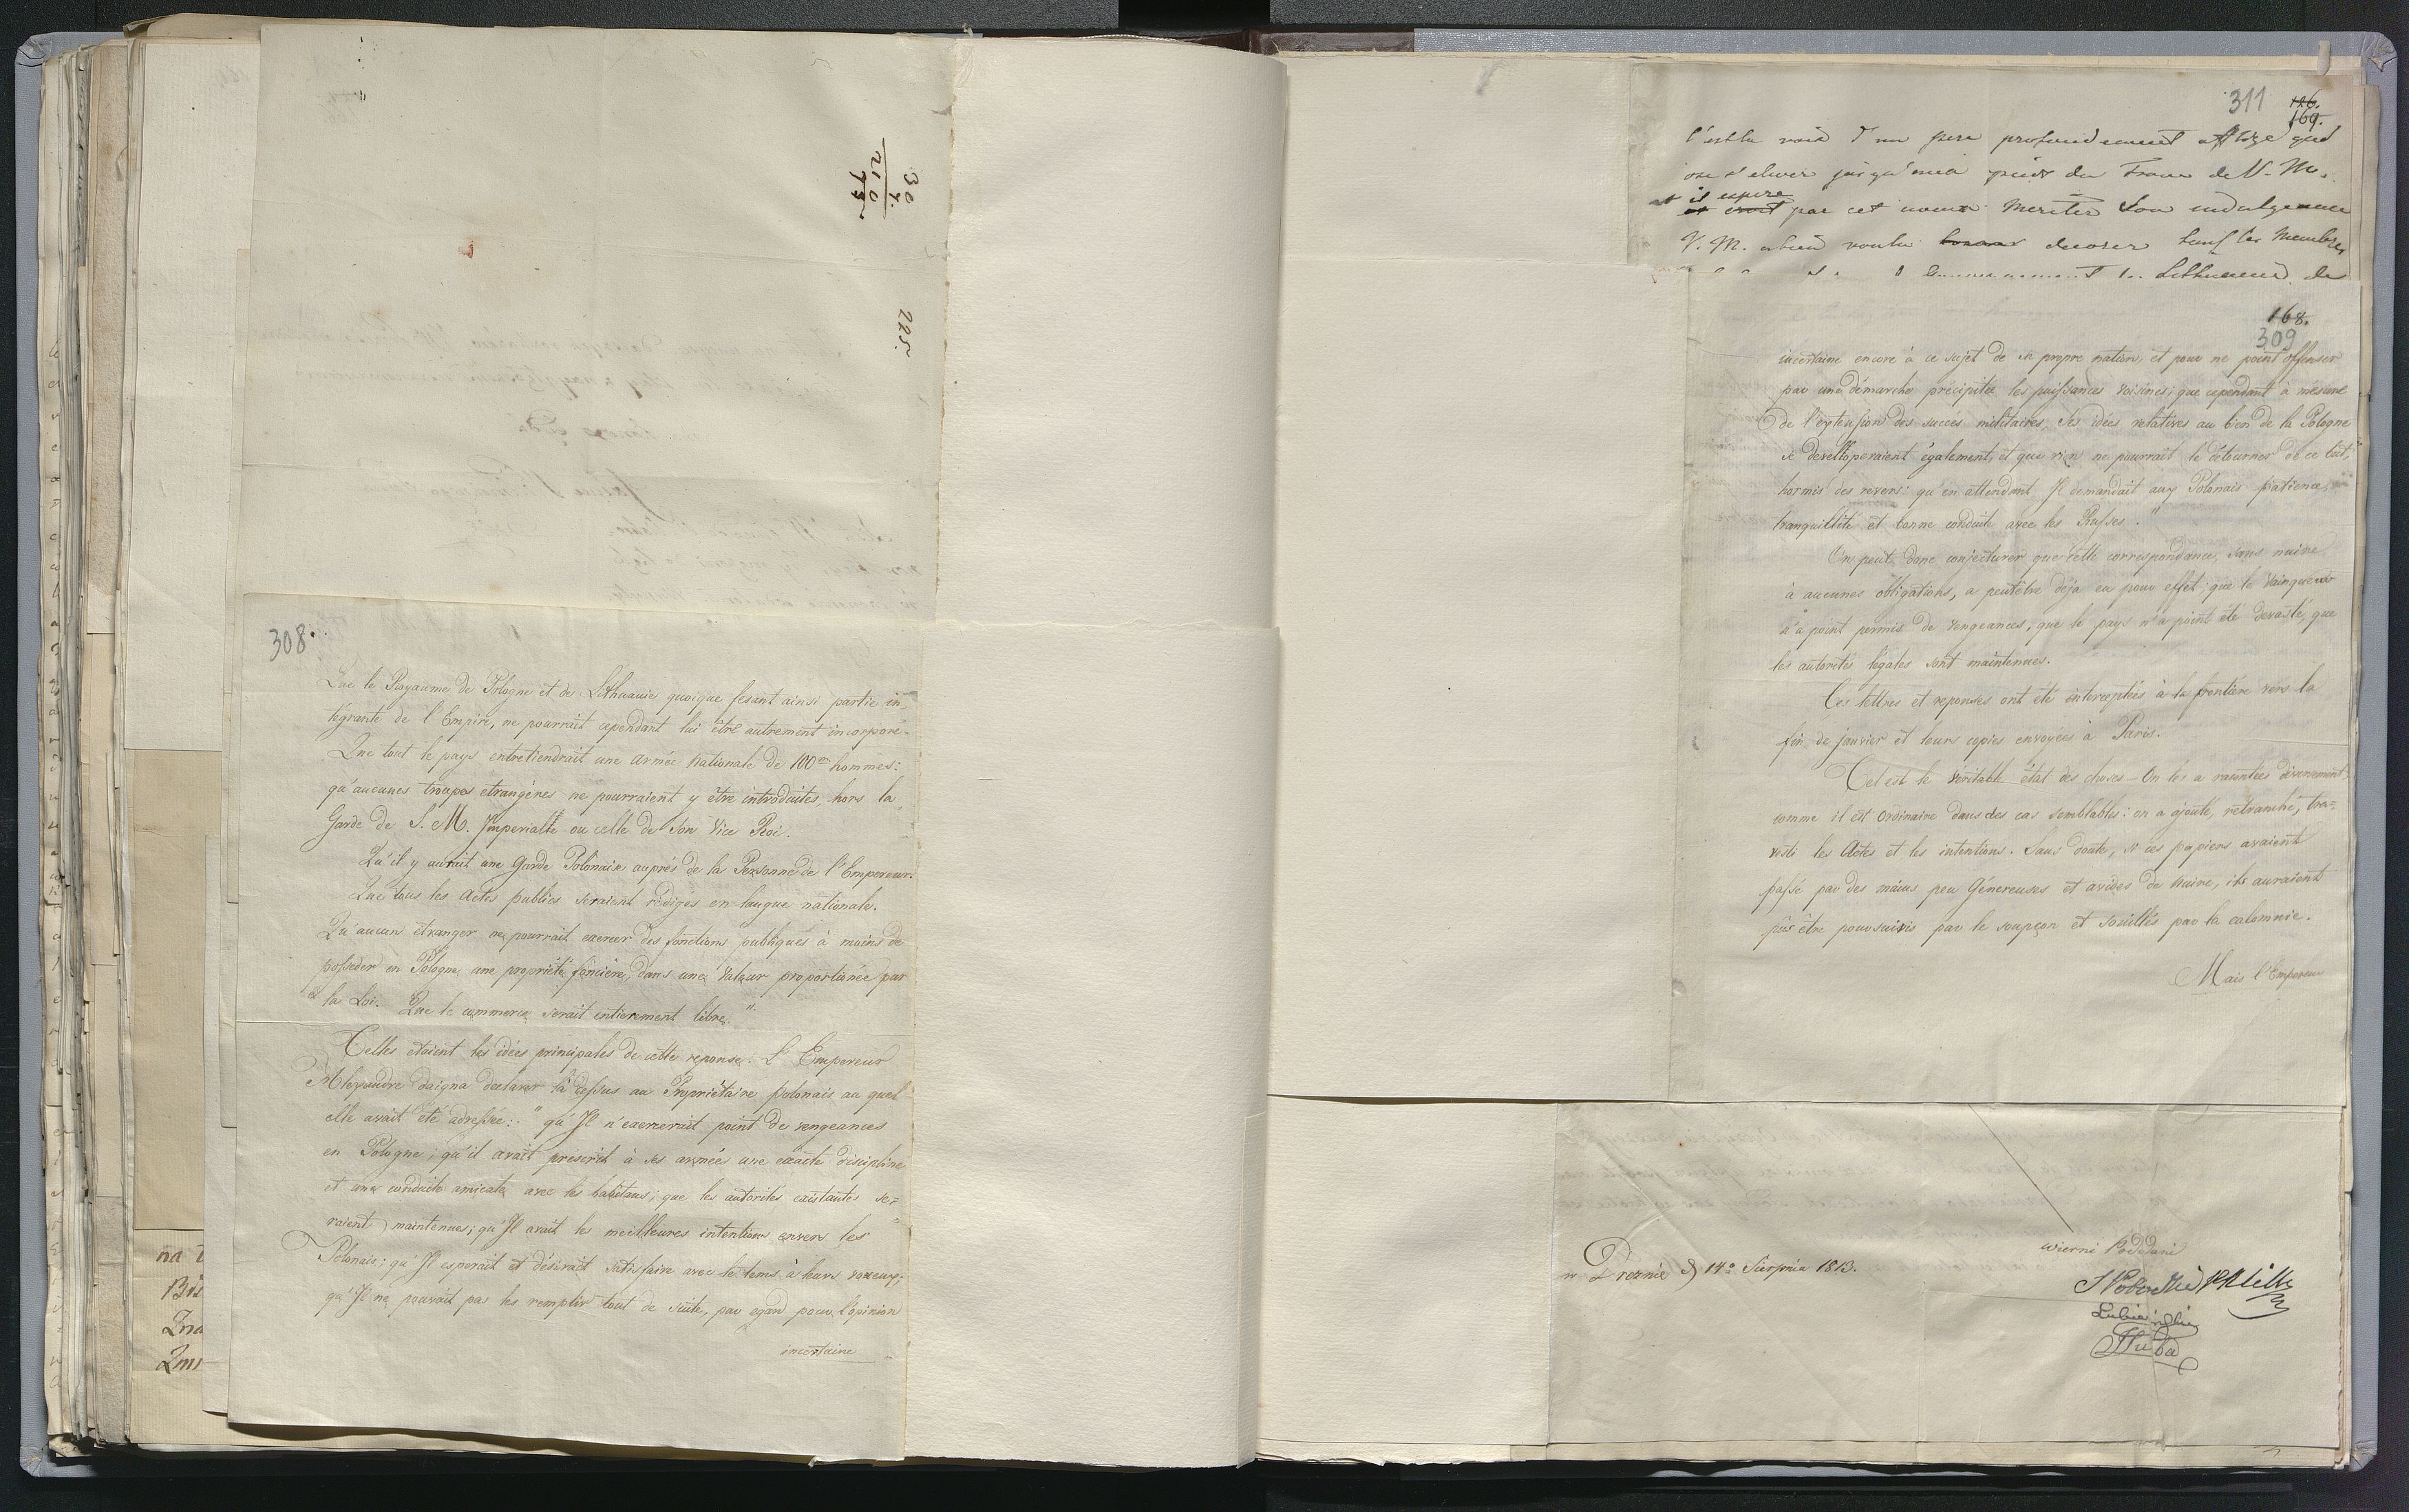 30
7.
210
15.
225.
308.
Que le Royaume de Pologne et de Lithuanie quoique fesant ainsi partie in
tégrante de l'Empire, ne pourrait cependant lui être autrement incorporé.
Que tout le pays entretiendrait une armée nationale de 100m hommes:
qu'aucunes troupes etrangères ne pourraient y être introduites, hors la
Garde de S. M. Imperiale ou celle de Son Vice Roi.
Qu'il y aurait une Garde Polonaise auprés de la Personne de l'Empereur.
Que tous les Actes publics seraient rédigés en langue nationale.
Qu'aucun étranger ne pourrait exercer des fonctions publiques à moins de
posseder en Pologne une propriété foncière, dans une valeur proportionée par
la Loi. Que le commerce serait entierement libre."
Telles etaient les idées principales de cette reponse. L'Empereur
Alexandre daigna declarer là dessus au Propriétaire polonais au quel
elle avait été adressée: "qu'Il n'exercerait point de vengeances
en Pologne; qu'il avait prescrit à ses armées une exacte discipline
et une conduite amicale avec les habitans; que les autorités existantes se=
raient maintenues; qu'Il avait les meilleures intentions envers les
Polonais; qu'Il esperait et désirait satisfaire avec le tems à leurs voeux;
qu'Il ne pouvait pas les remplir tout de suite, par egard pour l'opinion
incertaine
311
126.
169.
C'est la voix d'un pere profondement afflige qui
ose s'elever jusqu'aux pieds du Trone de V. M.
et il espere
et croit par cet aveu meriter Son indulgence
V. M. a bien voulu decorer tous les Membres
Lithuanie de
168.
309
incertaine encore à ce sujet de sa propre nation, et pour ne point offenser
par une démarche précipitée les puissances voisines; que cependant à mesure
de l'extension des succés militaires, Ses idées relatives au bien de la Pologne
se develloperaient également, et que rien ne pourrait le détourner de ce but,
hormis des revers: qu'en attendant Il demandait aux Polonais patience,
tranquillité et bonne conduite avec les Russes."
On peut donc conjecturer que cette correspondance, sans nuire
à aucunes obligations, a peutêtre déja eu pour effet, que le Vainqueur
n'a point permis de vengeances, que le pays n'a point été devasté, que
les autorités légales sont maintenues.
Ces lettres et reponses ont été interceptées à la frontiere vers la
fin de janvier et leurs copies envoyées à Paris.
Tel est le véritable état des choses – On les a racontées diversement
comme il est ordinaire dans des cas semblables: on a ajouté, retranché, tra=
vesti les Actes et les intentions. Sans doute, si ces papiers avaient
passé par des mains peu Génereuses et avides de nuire, ils auraient
pûs être poursuivis par le soupçon et souillés par la calomnie.
Mais l'Empereur
w Dreznie d 14o Sierpnia 1813.
wierni Poddani
Lubieński